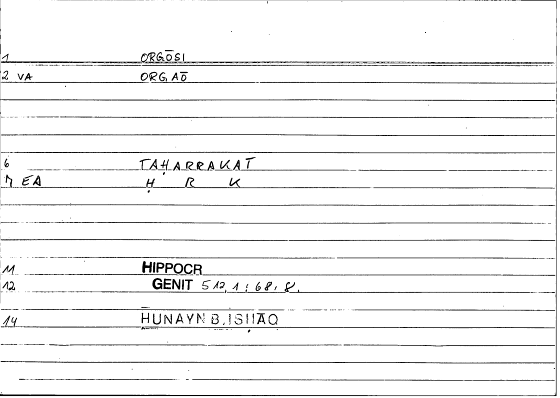 1 ORGŌSI
2 VA ORGAŌ
6 TAḤARRAKAT
7 EA Ḥ R K
11 HIPPOCR
12 GENIT 512,1: 68, 8.
14 ḤUNAYN B. ISḤĀQ